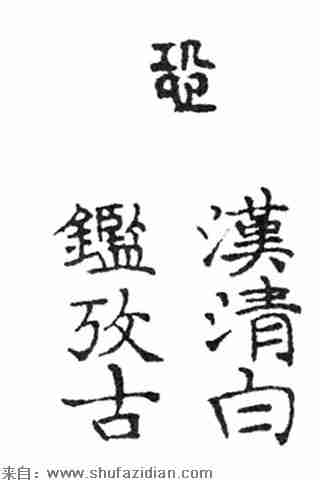 恐
漢清白
鑑攷古
来自：www.shufazidian.com